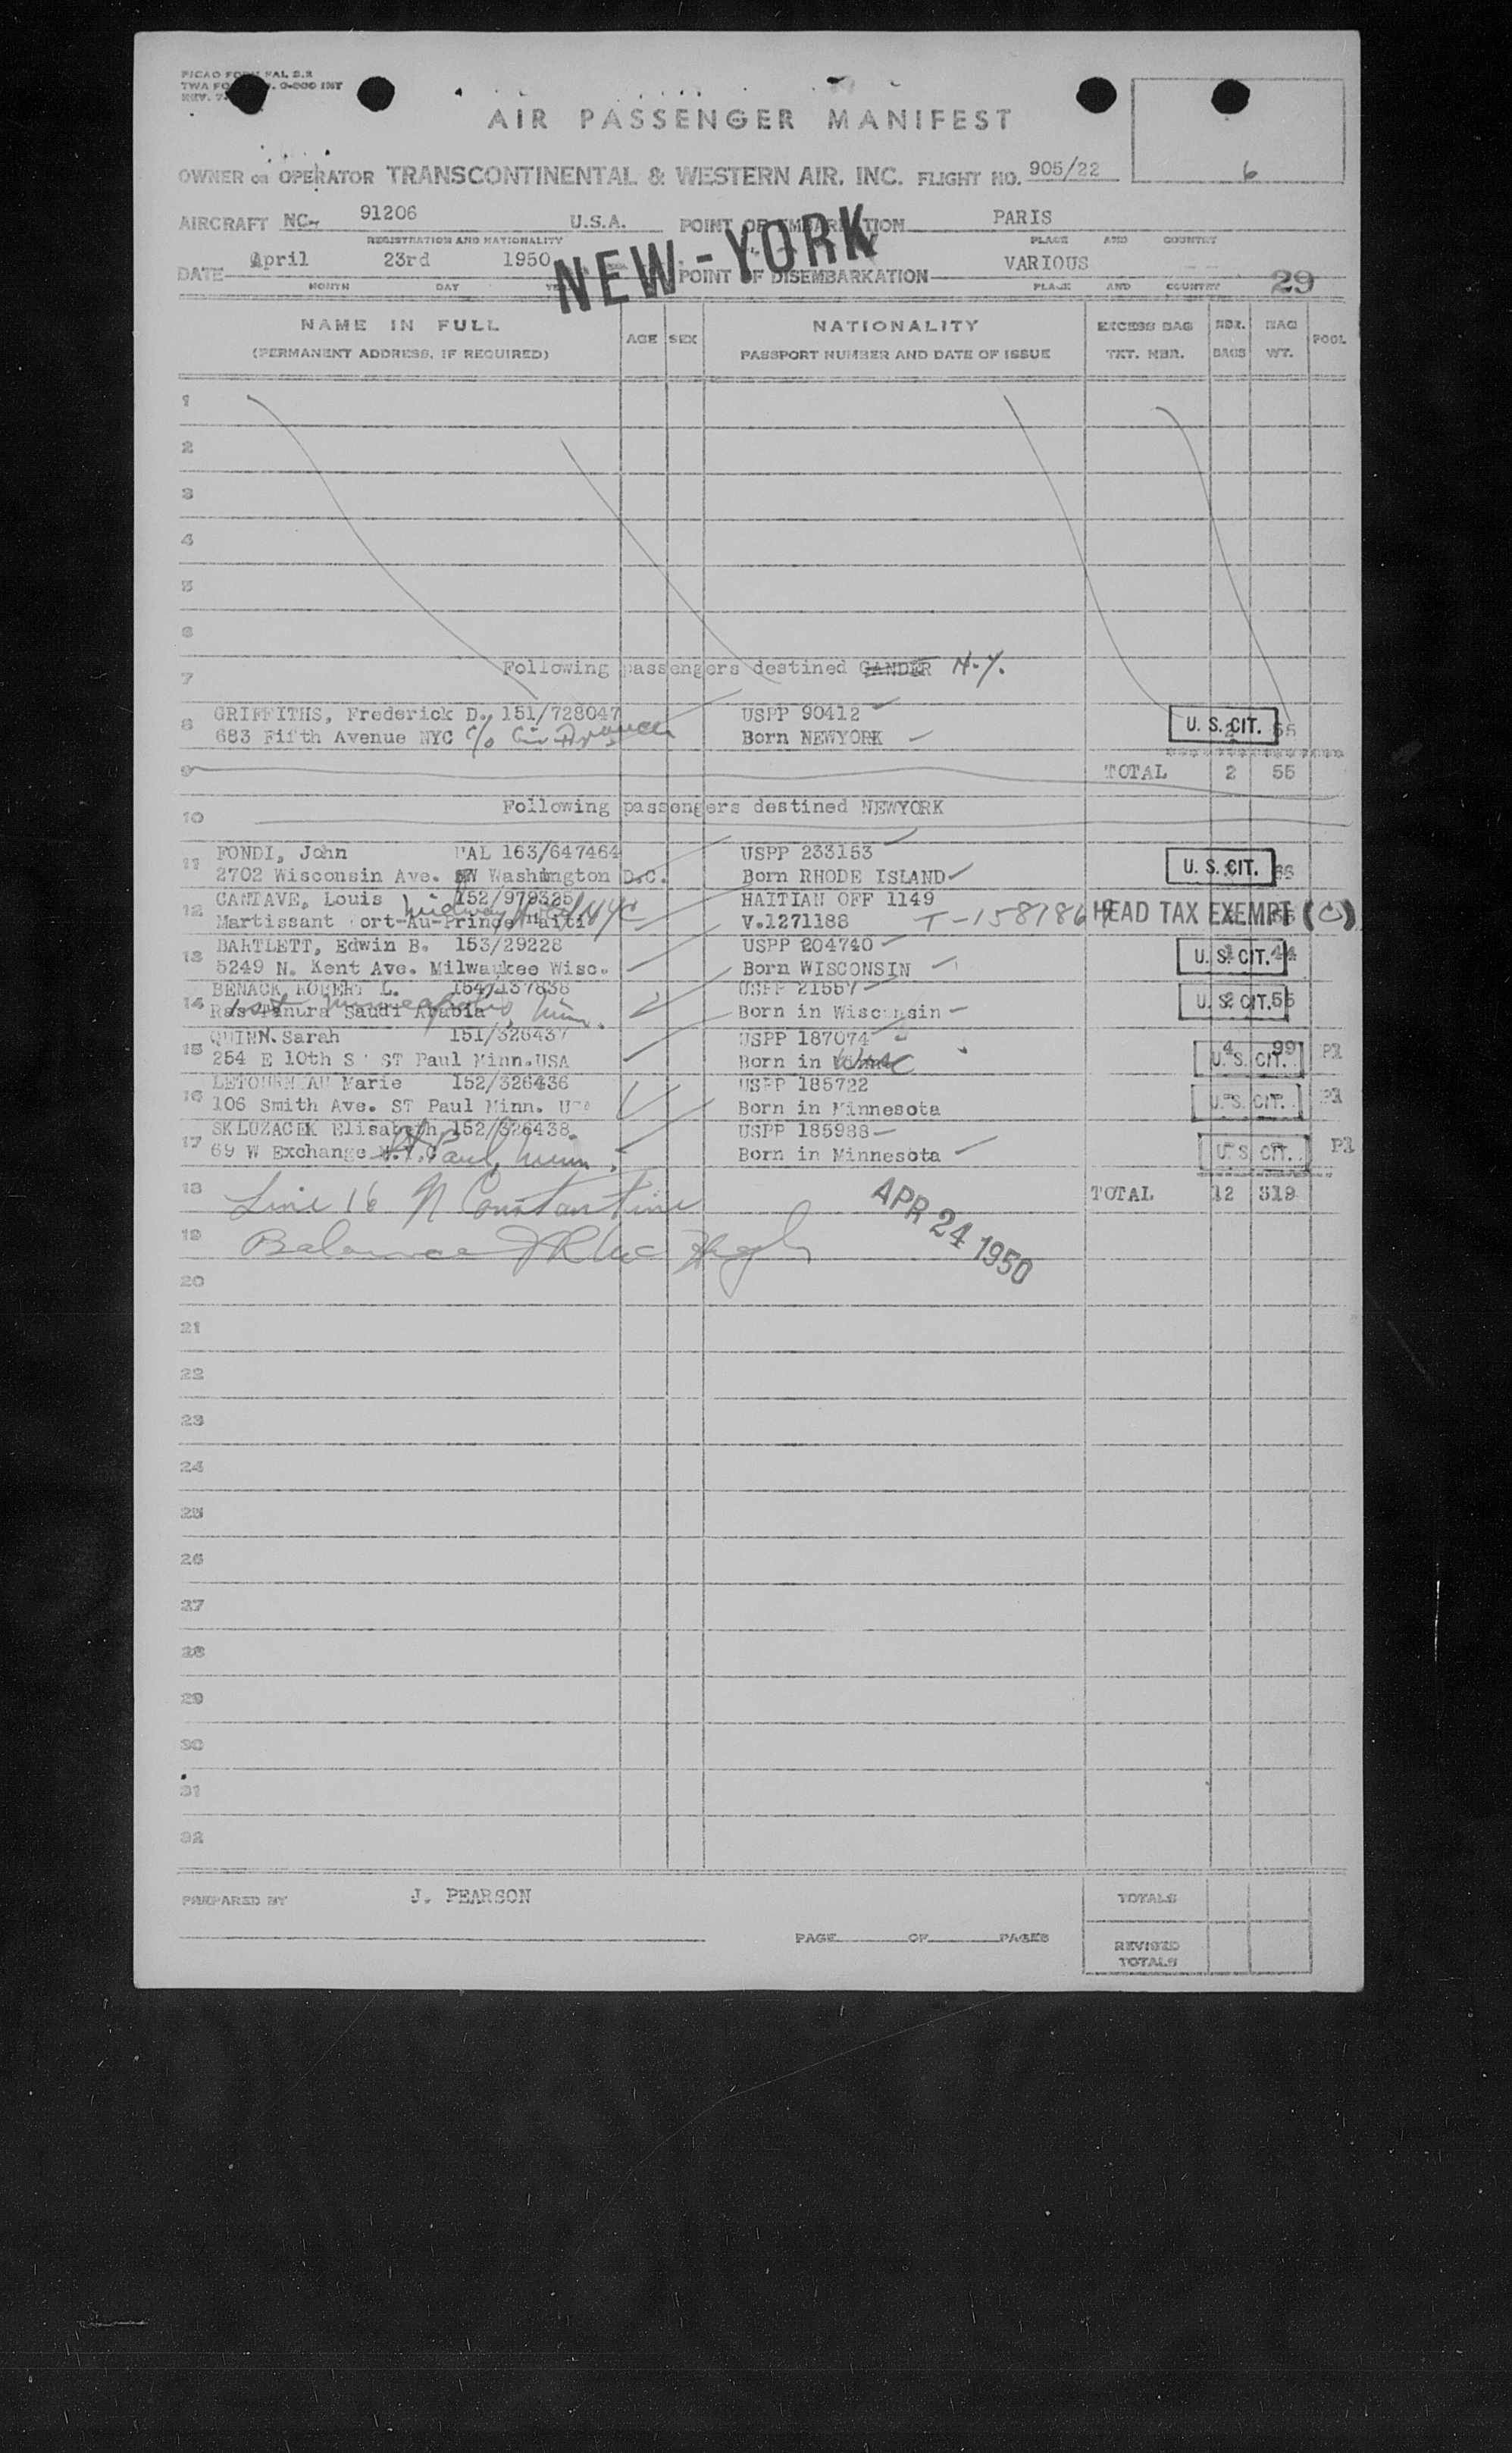 AIR PASSENGER MANIFEST
OWNER OR OPERATOR TRANSCONTINENTAL & WESTERN AIR, INC. FLIGHT NO. 905/22
6
AIRCRAFT NC- 91206 U.S.A. POINT OF EMBARKATION PARIS
REGISTRATION AND NATIONALITY PLACE AND COUNTRY
NEW-YORK
DATE April 23rd 1950 POINT OF DISEMBARKATION VARIOUS
MONTH DAY YEAR PLACE AND COUNTRY 29
NAME IN FULL AGE SEX NATIONALITY EXCESS BAG NBR. BAG POOL
(PERMANENT ADDRESS, IF REQUIRED) PASSPORT NUMBER AND DATE OF ISSUE TKT. NBR. BAGS WT.
1
2
3
4
5
6
7 Following passengers destined GANDER N.Y.
8 GRIFFITHS, Frederick D. 151/728047 USPP 90412 U. S. CIT. 2 55
683 Fifth Avenue NYC c/o Air France Born NEWYORK
9 TOTAL 2 55
10 Following passengers destined NEWYORK
11 FONDI, John PAL 163/647464 USPP 233153 U. S. CIT. 66
2702 Wisconsin Ave. NW Washington D.C. Born RHODE ISLAND
12 CANTAVE, Louis 152/979325 HAITIAN OFF 1149
Martissant Port-Au-Prince Haiti V.1271188 T-1587864 HEAD TAX EXEMPT (C)
13 BARTLETT, Edwin B. 153/29228 USPP 204740 U. S. CIT. 44
5249 N. Kent Ave. Milwaukee Wisc. Born WISCONSIN
14 BENACK ROBERT L. 154/137838 USPP 21557 U. S. CIT. 2 55
Ras Tanura Saudi Arabia Minneapolis, Minn. Born in Wisconsin
15 QUINN. Sarah 151/326437 USPP 187074 4 99 Pl
254 E 10th St ST Paul Minn.USA Born in Wisc U. S. CIT.
16 LETOURNEAU Marie 152/326436 USPP 185722 U. S. CIT. Pl
106 Smith Ave. ST Paul Minn. USA Born in Minnesota
17 SKLUZACEK Elisabeth 152/326438 USPP 185988 U. S. CIT. Pl
69 W Exchange N.Y.C St. Paul, Minn. Born in Minnesota
18 Line 16 N Constantine TOTAL 12 319
APR 24 1950
19 Balance
20
21
22
23
24
25
26
27
28
29
30
31
32
PREPARED BY J. PEARSON TOTALS
PAGE OF PAGES REVISED
TOTALS